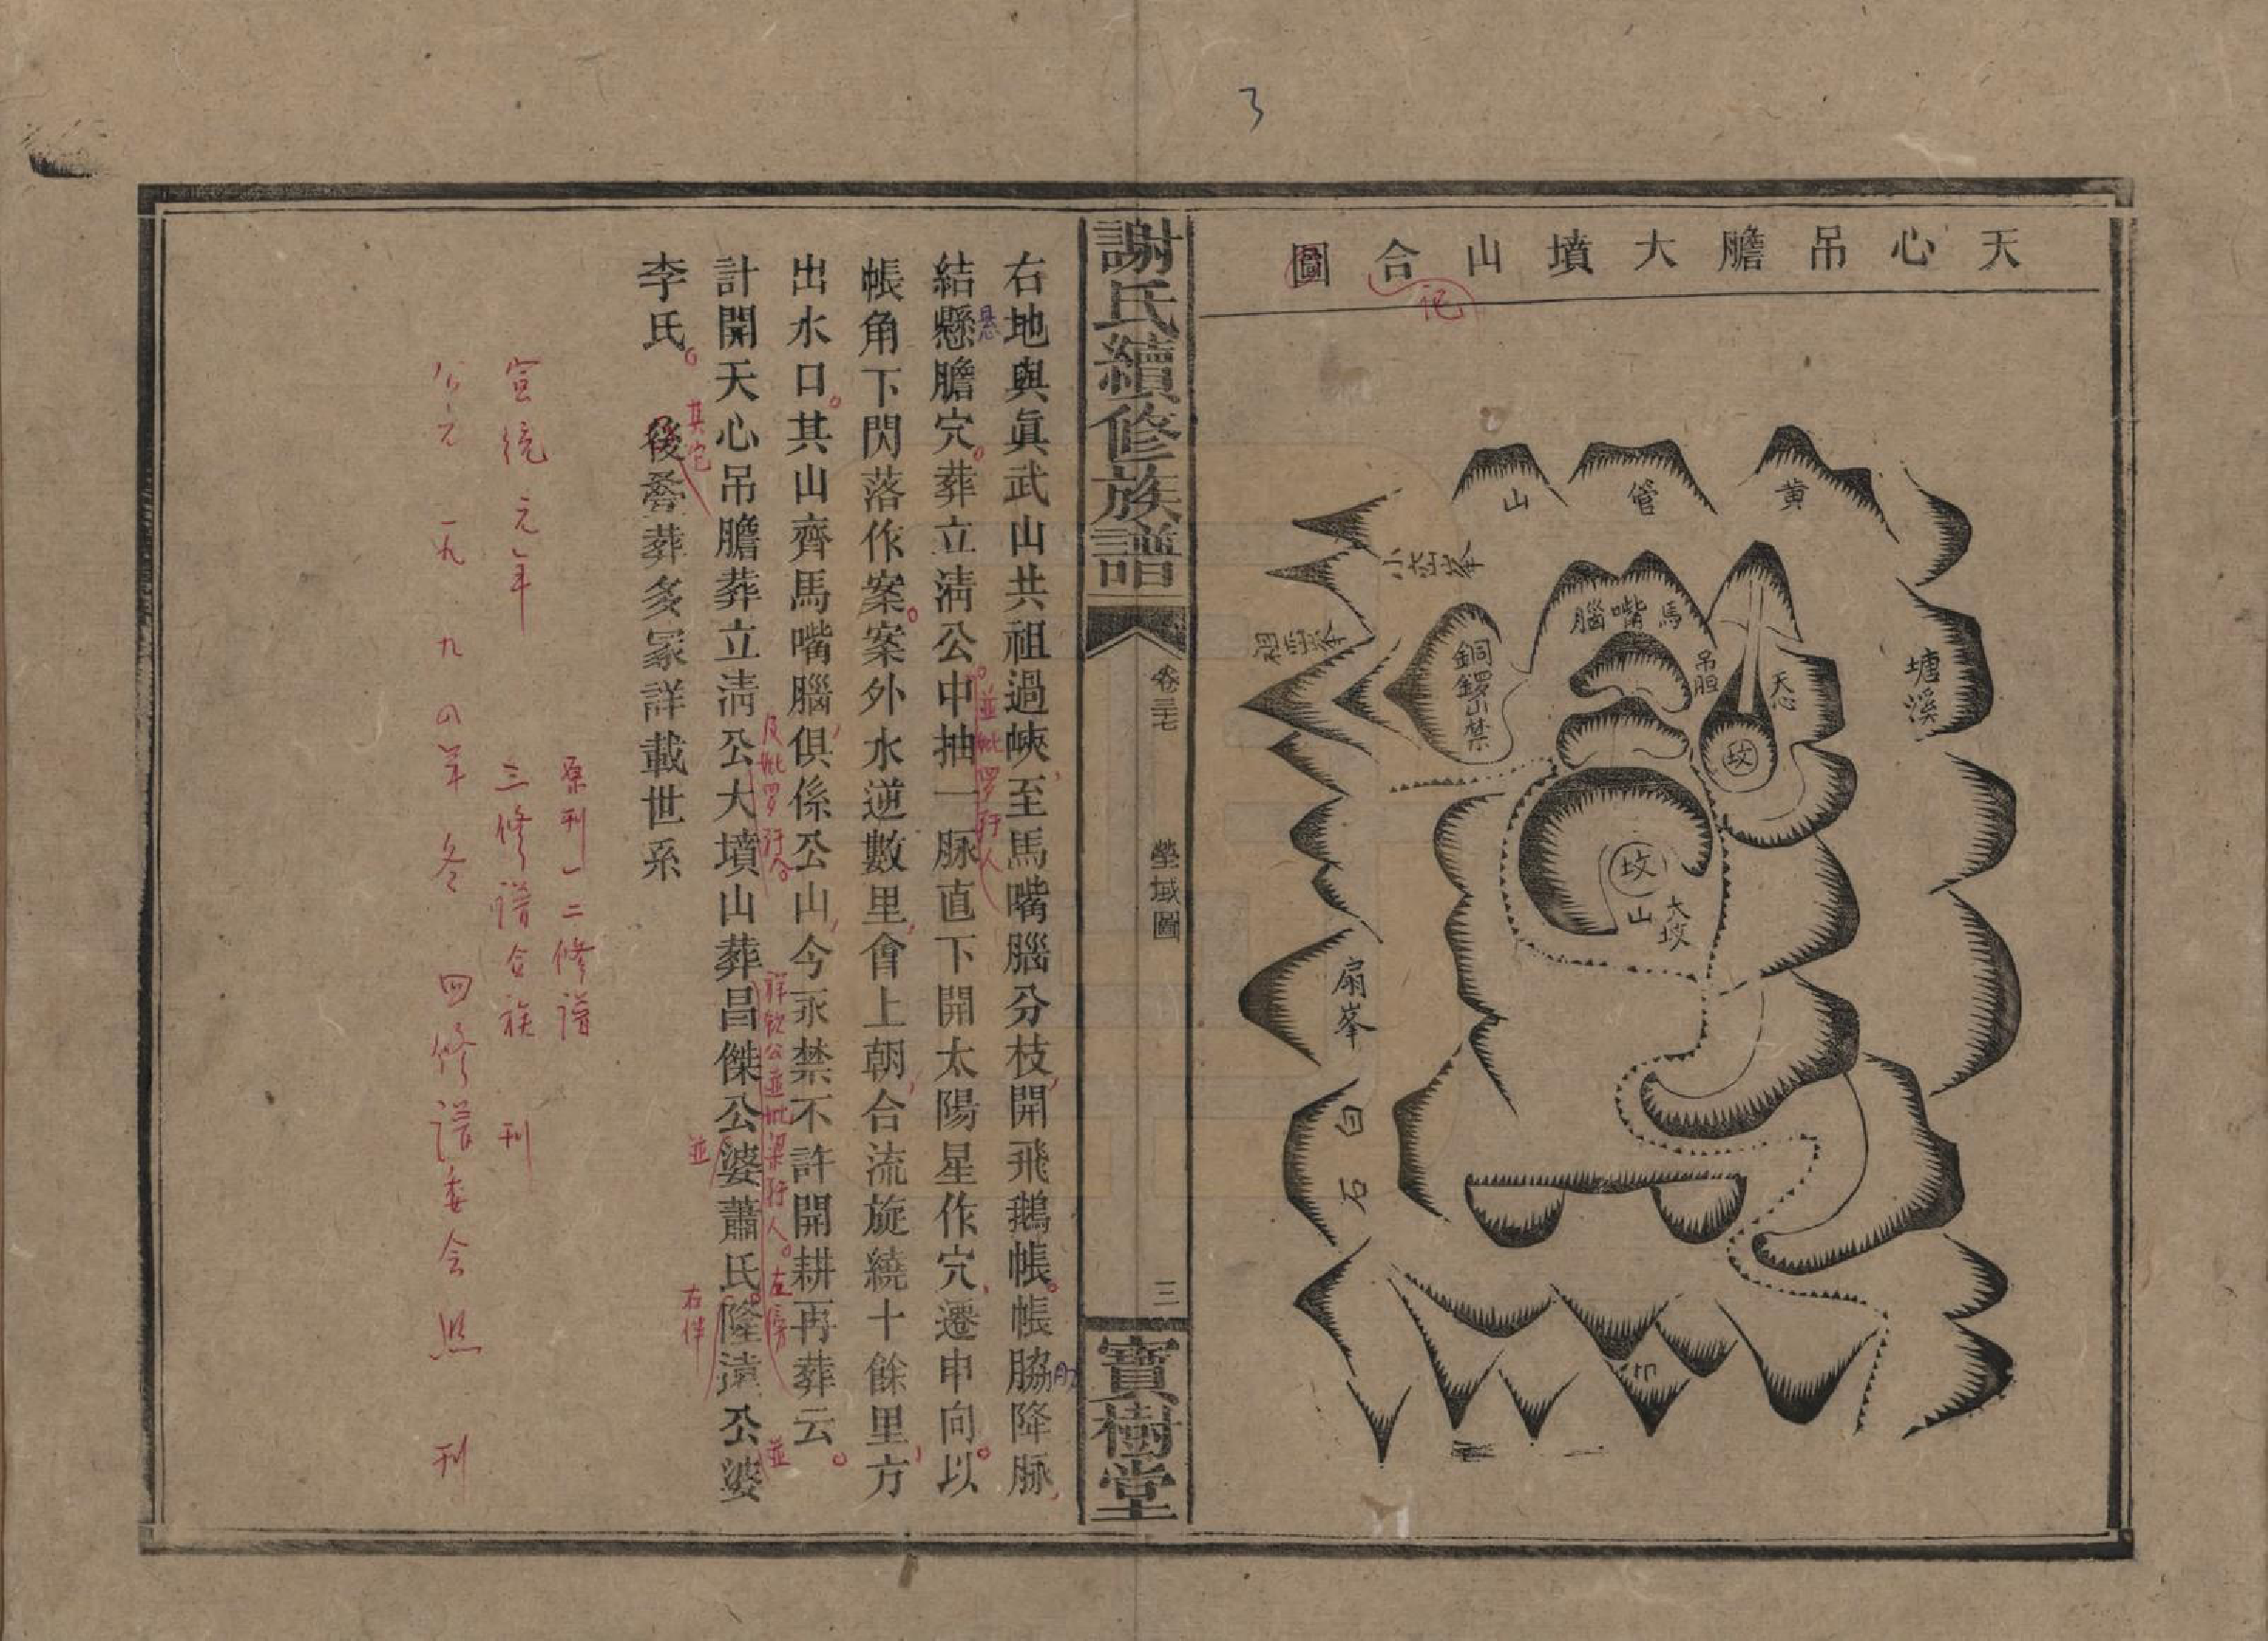 3
天心吊膽大墳山合圖
記
黄
管
山
小峦峯
馬嘴腦
銅鑼山禁
吊胆
天心
塘溪
坟
坟
大坟
山
扇峯
白石
謝氏續修族譜
卷三七
塋域圖
三
寶樹堂
右地與眞武山共祖過峽至馬嘴腦分枝開飛鵝帳帳脇降脉
結懸膽穴葬立淸公中抽一脉直下開太陽星作穴遷申向以
並妣罗孺人
帳角下閃落作案案外水逆數里會上朝合流旋繞十餘里方
出水口其山齊馬嘴腦俱係公山今永禁不許開耕再葬云
及妣罗孺合
祥欽公並妣梁孺人。左傍
並
計開天心吊膽葬立淸公大墳山葬昌傑公婆蕭氏隆遠公婆
並
右伴
李氏 後叠葬多冢詳載世系
其它
原刊一二修谱
宣統元年 三修谱合族 刊
公元一九九四年冬 四修谱委会照刊